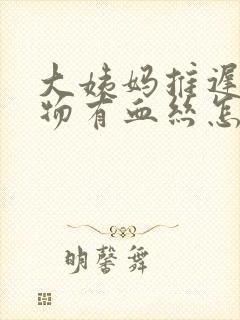 大姨妈推迟
物有血丝怎
明馨舞